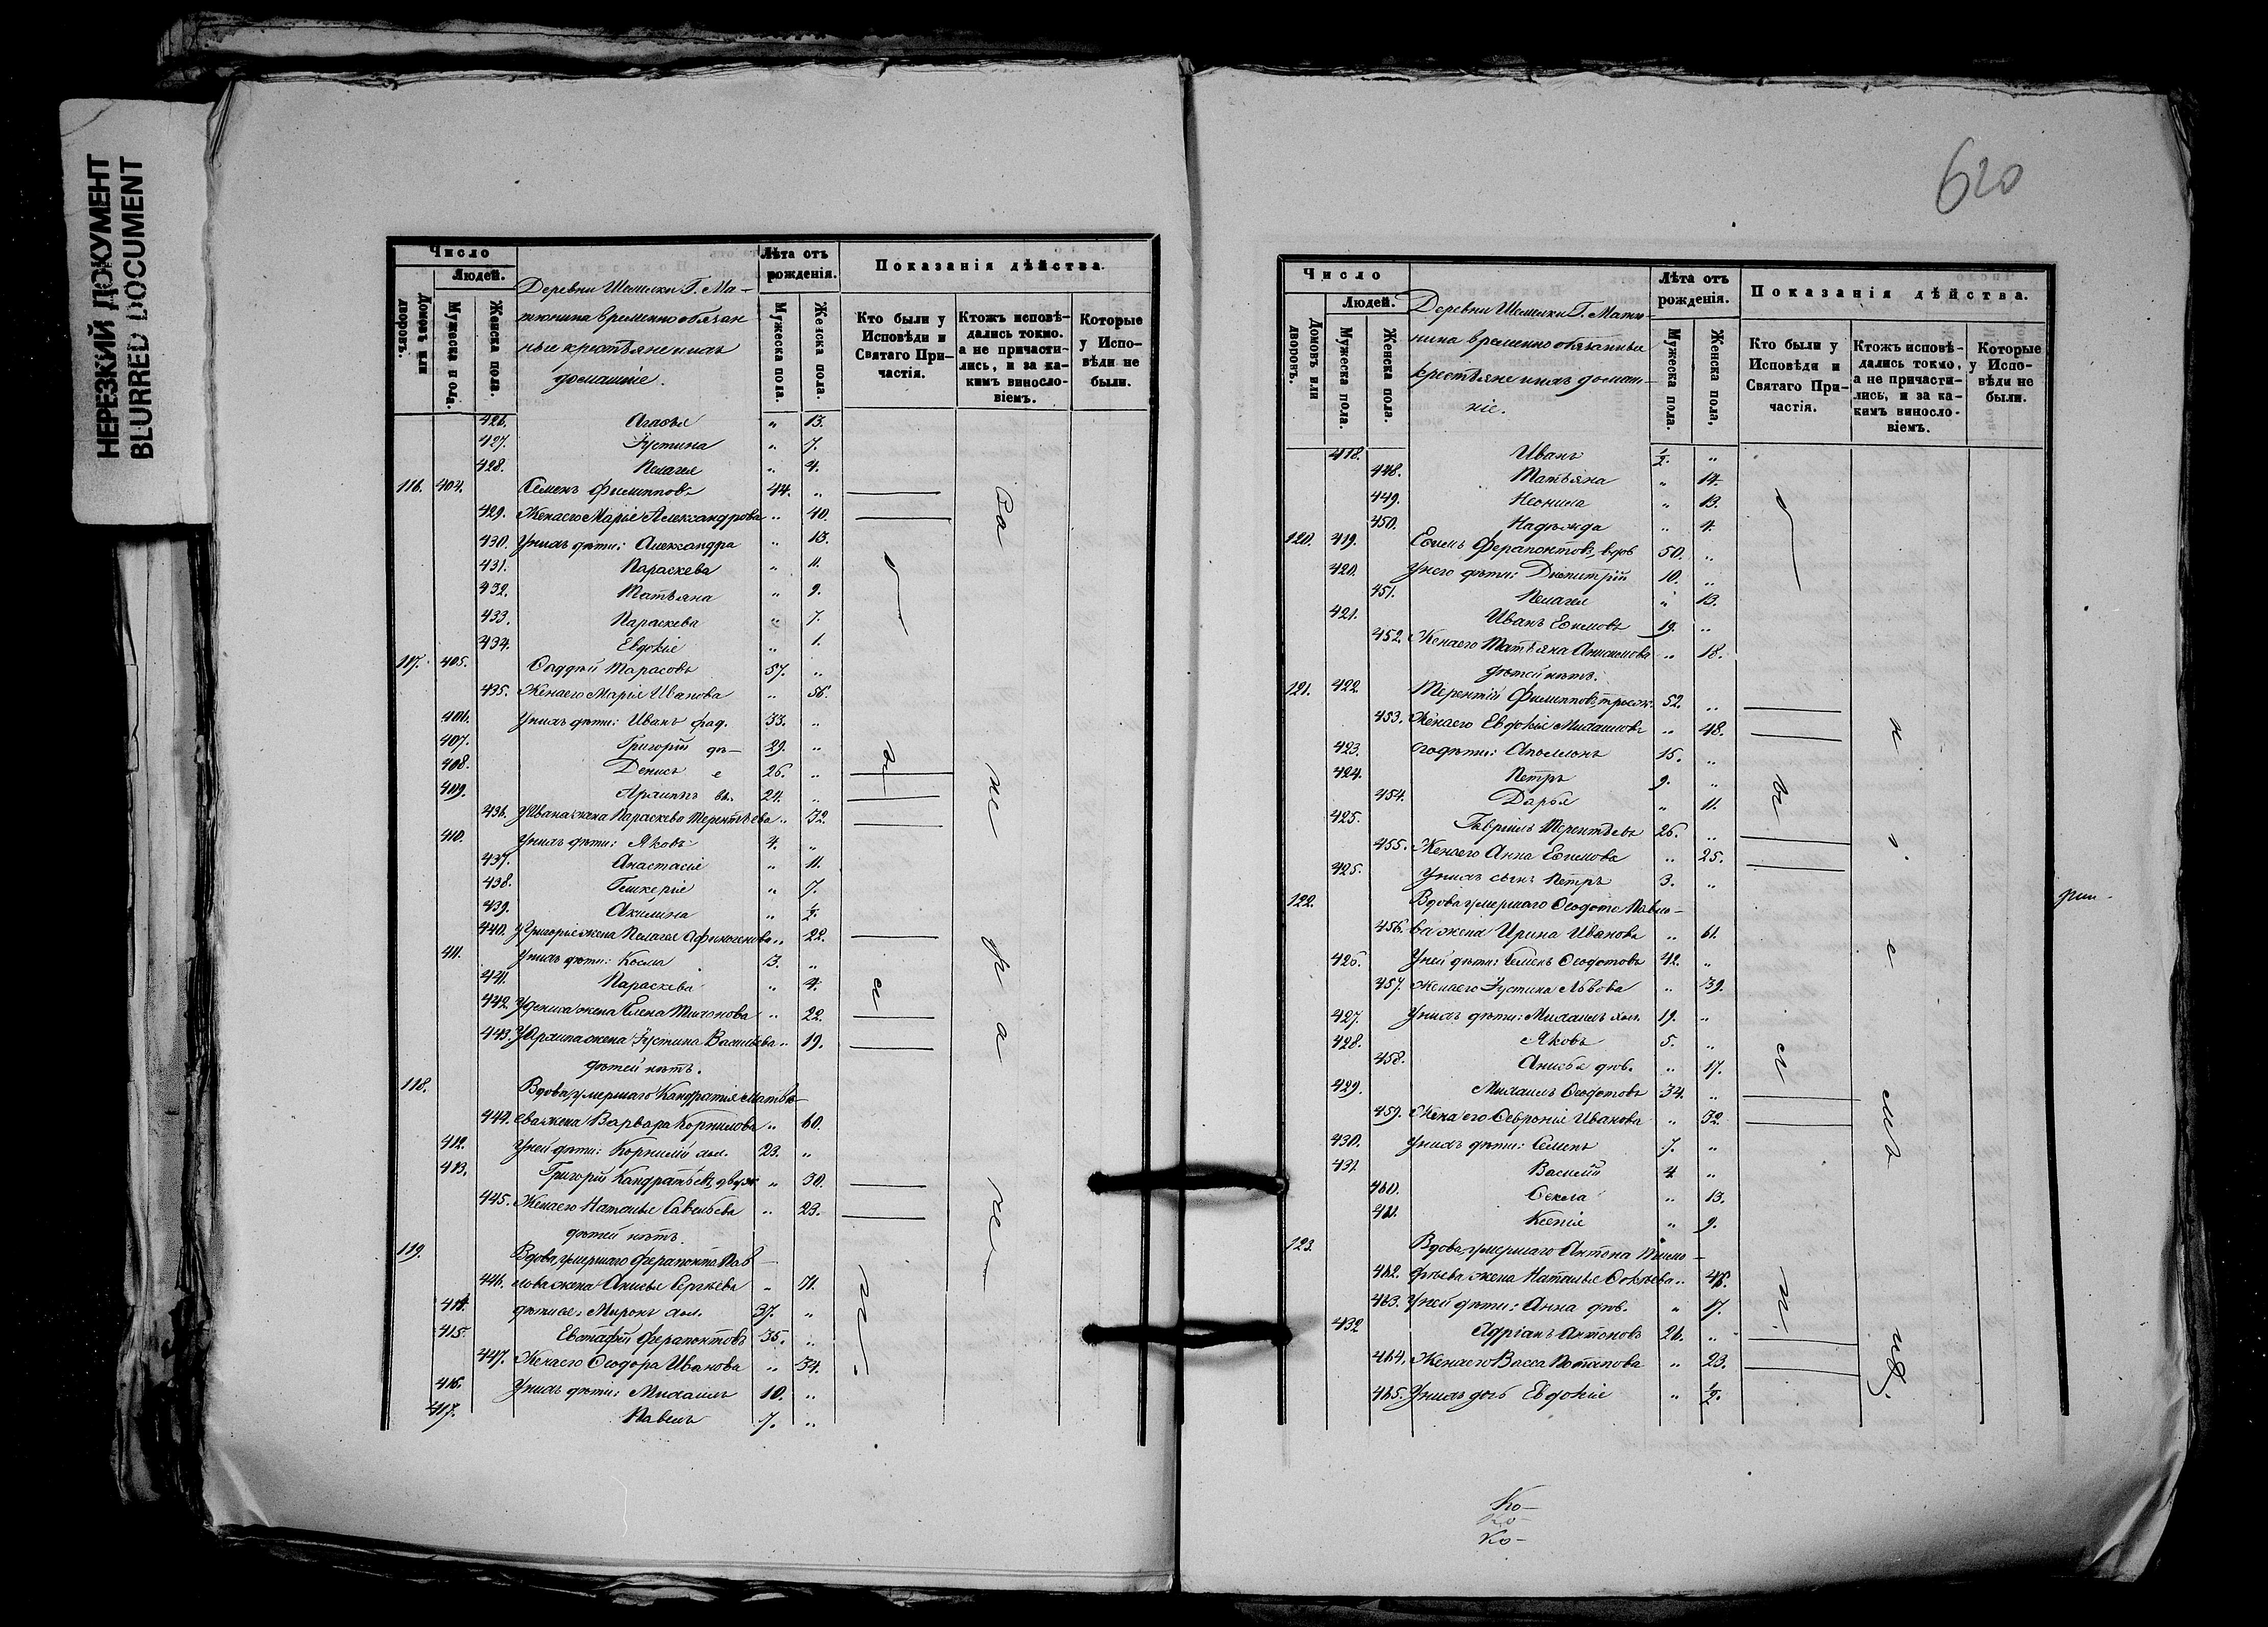 НЕРЕЗКИЙ ДОКУМЕНТ
BLURRED DOCUMENT
Число
Людей.
Домовъ или дворовъ.
Мужеска пола.
Женска пола.
Деревни Шемелки Г. Ма-
тюнина временнообязан
ные крестьяне и ихъ
домашніе.
Лѣта отъ рожденія.
Мужеска пола.
Женска пола.
Показанія дѣйства.
Кто были у Исповѣди и Святаго Причастія.
Ктожъ исповѣдались токмо, а не причастились, и за какимъ винословіемъ.
Которые у Исповѣди не были.
426. Агаѳья " 13.
427. Іустина " 7.
428. Пелагея " 4.
116. 404. Семенъ Филипповъ 44. "
429. Жена его Марія Александрова " 40.
430. У нихъ дѣти: Александра " 13.
431. Параскева " 11.
432. Татьяна " 9.
433. Параскева " 7.
434. Евдокія " 1.
117. 405. Ѳаддей Тарасовъ 57. "
435. Жена его Марія Иванова " 56.
406. У нихъ дѣти: Иванъ Ѳад. 33. "
407. Григорій дѣ- 29. "
408. Денисъ е 26. "
409. Архипъ въ. 24. "
436. У Ивана жена Параскева Терентьева " 32.
410. У нихъ дѣти: Яковъ 4. "
437. Анастасія " 11.
438. Гликерія " 7.
439. Акилина " ½.
440. У Григорья жена Пелагея Афиногенова " 22.
411. У нихъ дѣти: Косма 3. "
441. Параскева " 4.
442. У Дениса жена Елена Тихонова " 22.
443. У Архипа жена Іустина Васильева " 19.
дѣтей нѣтъ.
118. Вдова, умершаго Кандратія Матвѣ-
444. ева жена Варвара Корнилова " 60.
412. У ней дѣти: Корнилій хол. 23. "
413. Григорій Кандратьевъ, двуж " 30.
445. Жена его Наталья Савельева " 23.
дѣтей нѣтъ.
119. Вдова, умершаго Ферапонта Пав-
446. лова жена Анисья Сергѣева " 71.
414. дѣти ея: Миронъ хол. 37. "
415. Евстафій Ферапонтовъ 35. "
447. Жена его Ѳеодора Иванова " 34.
416. У нихъ дѣти: Михаилъ 10. "
417. Павелъ 7. "
620
Число
Людей.
Домовъ или дворовъ.
Мужеска пола.
Женска пола.
Деревни Шемелки Г. Матю-
нина временнообязанные
крестьяне и ихъ домаш-
ніе.
Лѣта отъ рожденія.
Мужеска пола.
Женска пола,
Показанія дѣйства.
Кто были у Исповѣди и Святаго Причастія.
Ктожъ исповѣдались токмо, а не причастились, и за какимъ винословіемъ.
Которые у Исповѣди не были.
418. Иванъ ½. "
448. Татьяна " 14.
449. Неонила " 13.
450. Надежда " 4.
120. 419. Ефимъ Ферапонтовъ, вдов 50. "
420. У него дѣти: Димитрій 10. "
451. Пелагея " 13.
421. Иванъ Ефимовъ 19. "
452. Жена его Татьяна Анисимова " 18.
дѣтей нѣтъ.
121. 422. Терентій Филипповъ, троеж. 52. "
453. Жена его Евдокія Михаилова " 48.
423. его дѣти: Аполлонъ 15. "
424. Петръ 9. "
454. Дарья " 11.
425. Гавріилъ Терентьевъ 26. "
455. Жена его Анна Ефимова " 25.
425. У нихъ сынъ Петръ 3. "
122. Вдова умершаго Ѳеодота Павло-
456. ва жена Ирина Иванова " 61.
426. У ней дѣти: Семенъ Ѳеодотовъ 42. "
457. Жена его Іустина Львова " 39.
427. У нихъ дѣти: Михаилъ хол. 19. "
428. Яковъ 5. "
458. Анисья дѣв. " 17.
429. Михаилъ Ѳеодотовъ 34. "
459. Жена его Ѳевронія Иванова " 32.
430. У нихъ дѣти: Семенъ 7. "
431 Василій 4 "
460. Ѳекла " 13.
461. Ксенія " 9.
123. Вдова, умершаго Антона Тимо-
462. фѣева жена Наталья Ѳокѣева " 48.
463. У ней дѣти: Анна дѣв. " 17.
432 Адріанъ Антоновъ 26. "
464. Жена его Васса Потапова " 23.
465. У нихъ дочь Евдокія " ½.
Ко-
Ко-
Ко-